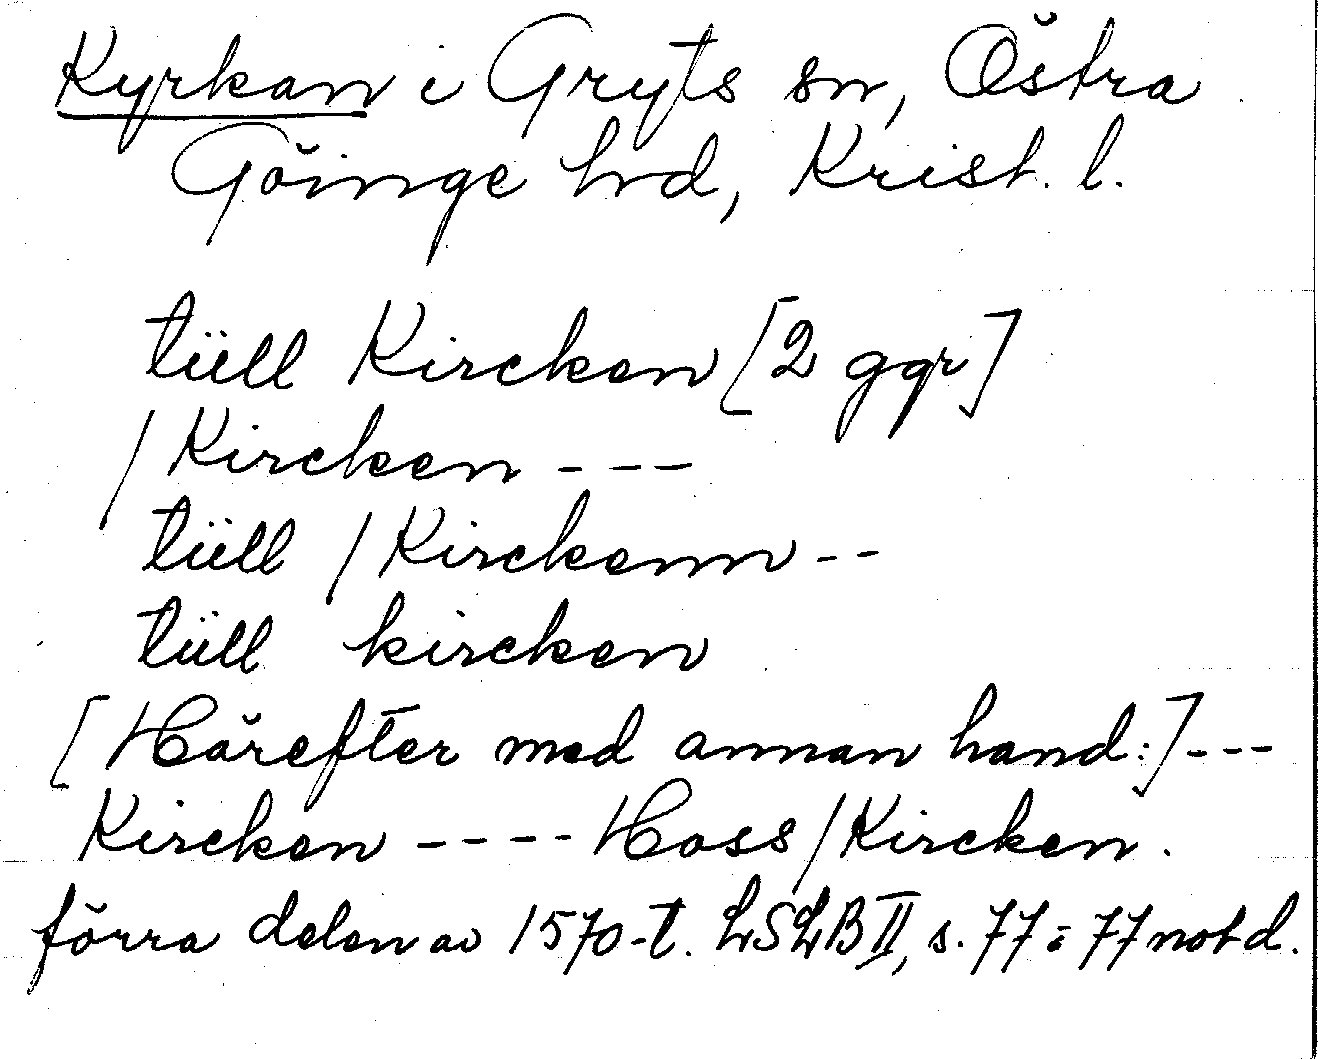 Kyrkan i Gryts sn, Östra
Göinge hrd, Krist. l.
tüll Kircken [2 ggr]
/Kircken - - -
tüll /Kirckenn - -
tüll kircken
[Härefter med annan hand:] - - -
Kircken - - - - Hoss/Kircken.
förra delen av 1570-t. LSLB II, s. 77; 77 not d.